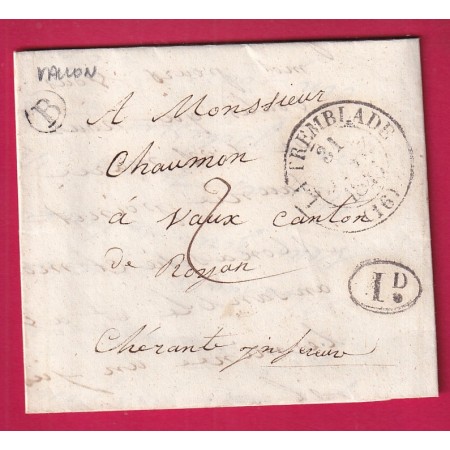 VALLON
B
A Monssieur
Chaumon
à Vaux Canton
de Royan
Chérante inferieure
2
LA TREMBLADE
31
(16)
1D